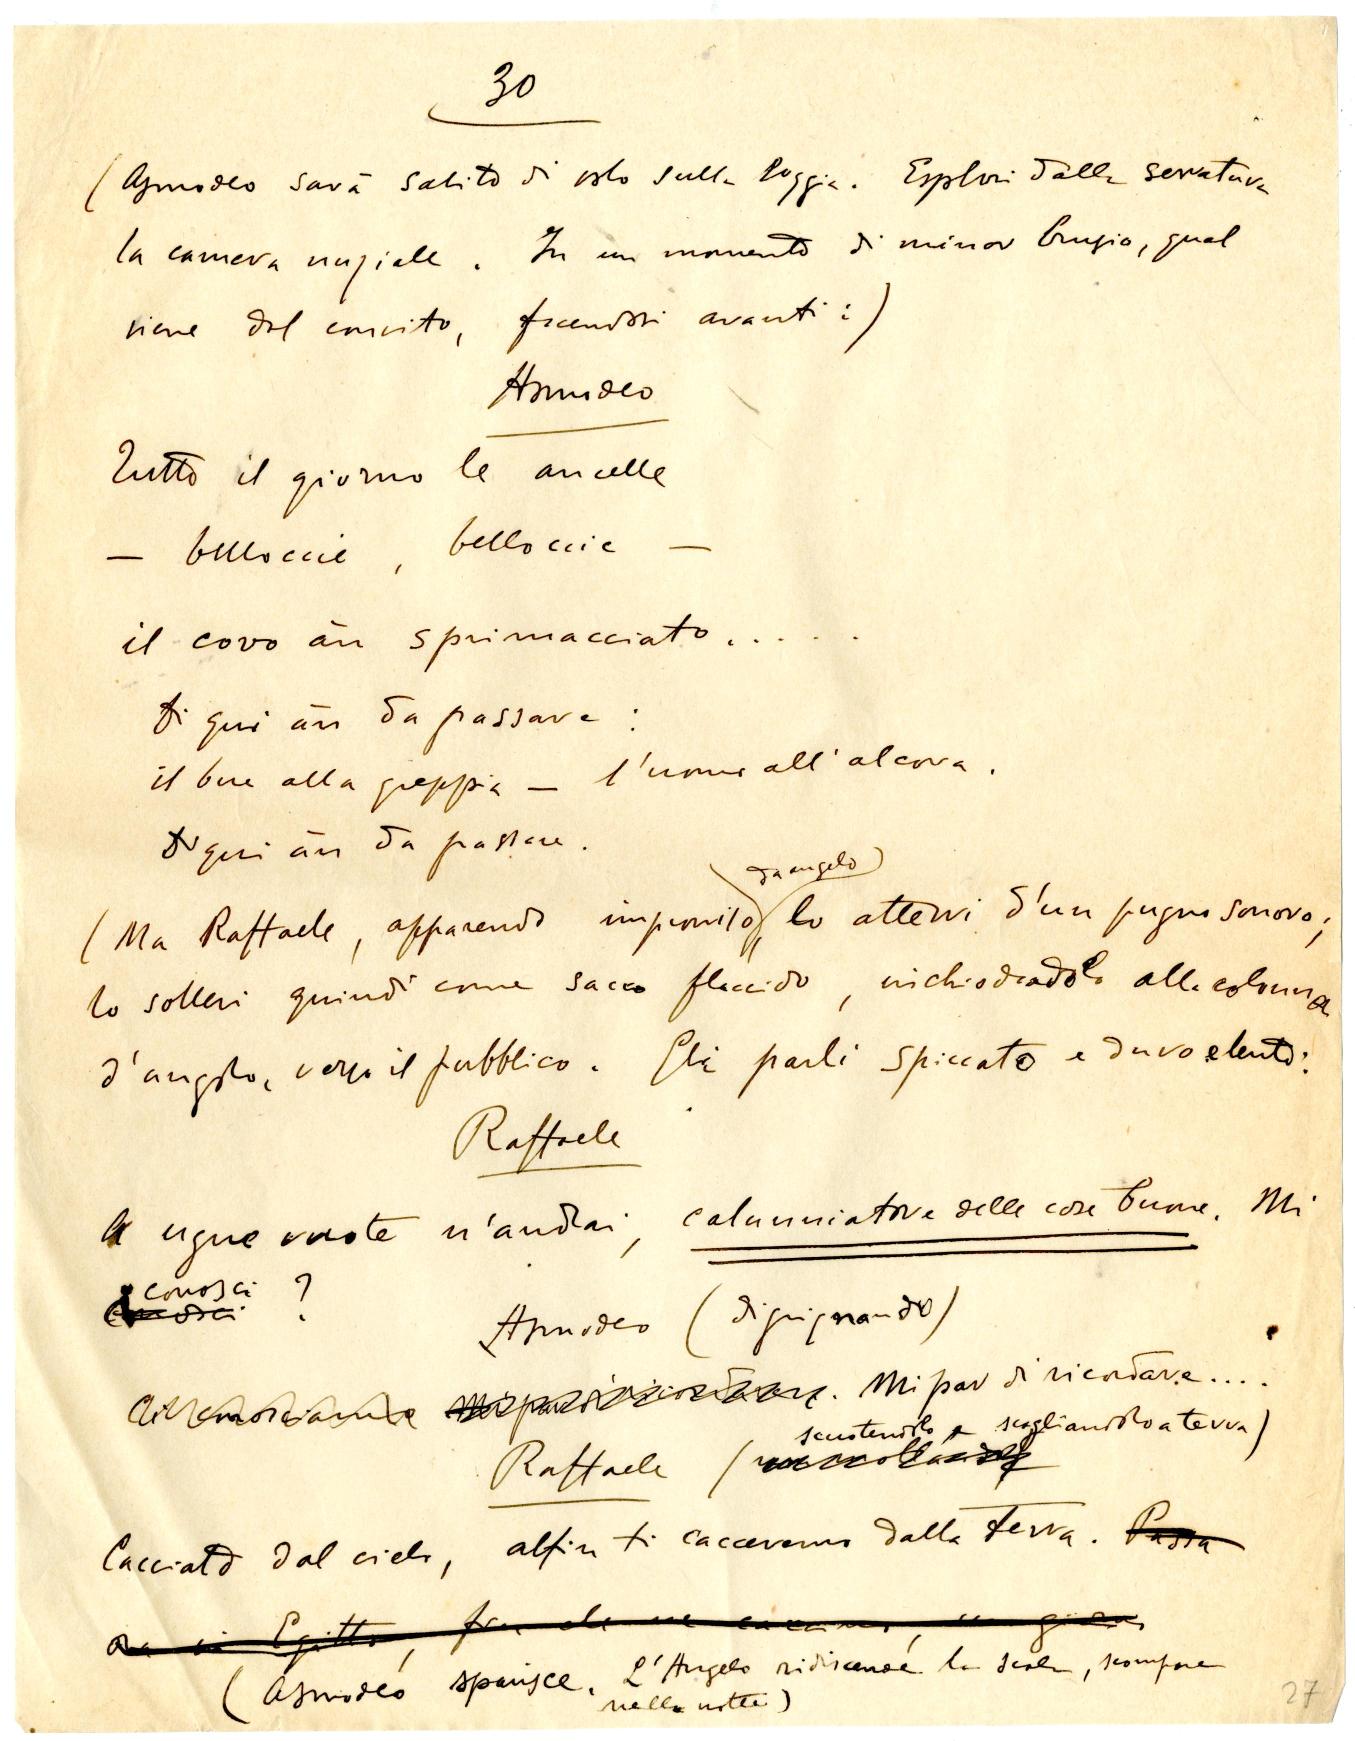 30
(Asmodeo sarà salito di volo sulla loggia. Esplori dalla serratura
la camera nuziale. In un momento di minor brusio, qual
viene dal convito, facendosi avanti:)
Asmodeo
Tutto il giorno le ancelle
— belloccie, belloccie —
il covo àn sprimacciato.....
Di qui àn da passare:
il bue alla greppia — l'uomo all'alcova.
Di qui àn da passare.
da angelo
(Ma Raffaele, apparendo improvviso, lo atterri d'un pugno sonoro;
lo sollevi quindi come sacco flaccido, inchiodandolo alla colonna
d'angolo, verso il pubblico. Gli parli spiccato e duro e lento:
Raffaele
A ugne vuote n'andrai, calunniatore delle cose buone. Mi
conosci ?
Asmodeo (digrignando)
Mi par di ricordare. Mi par di ricordare....
scuotendolo e scagliandolo a terra)
Raffaele (
Cacciato dal cielo, alfin ti cacceremo dalla terra. Passa
ora in Egitto,
(Asmodeo sparisce. L'Angelo ridiscende la scala, scompare
nella notte)
27